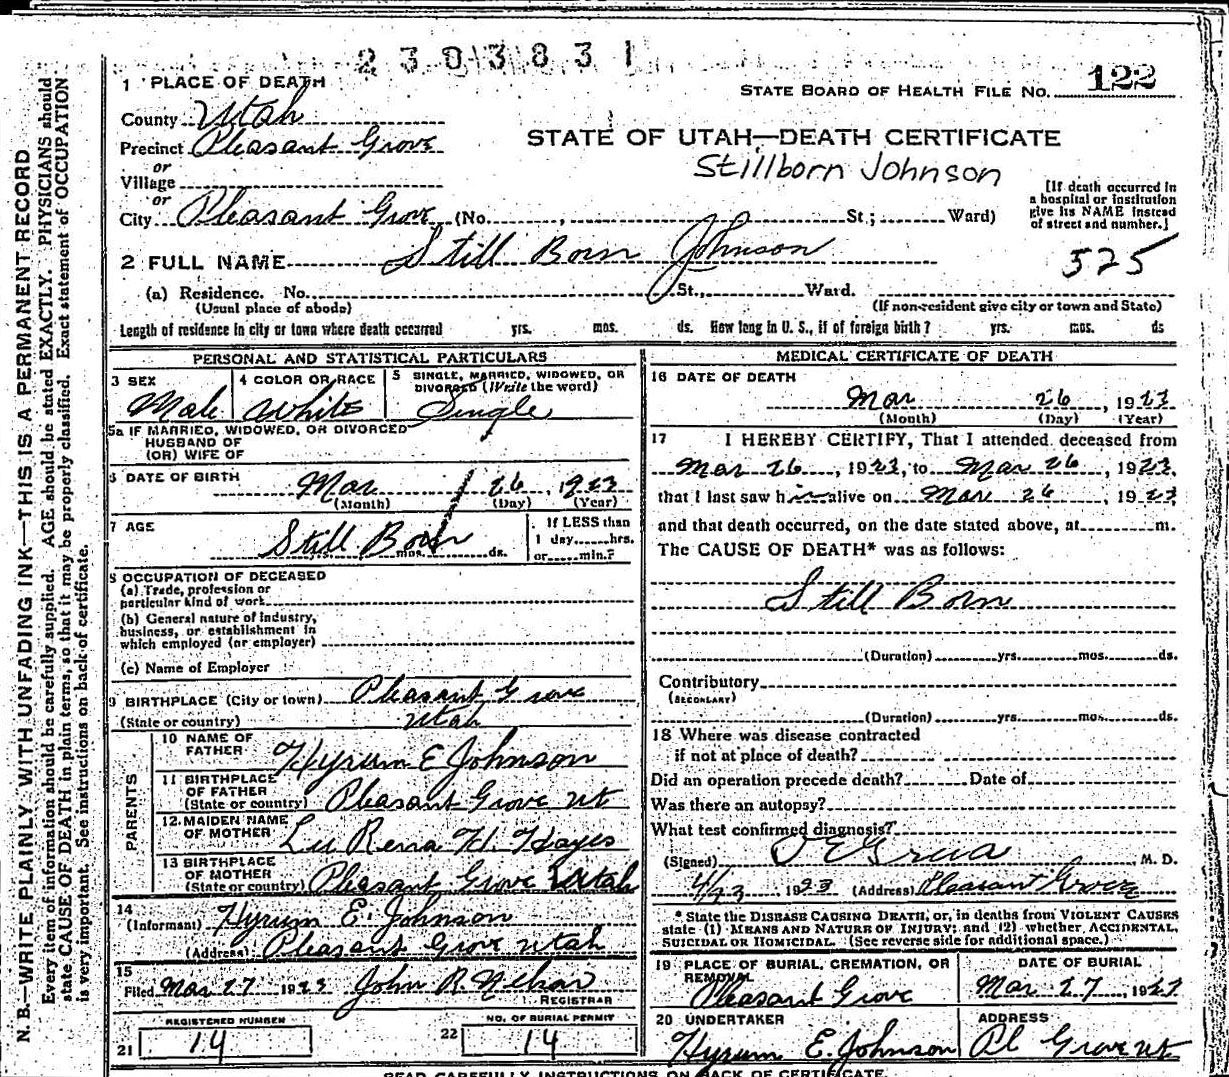 2303831
1 PLACE OF DEATH
STATE BOARD OF HEALTH FILE NO. 122
County Utah
STATE OF UTAH—DEATH CERTIFICATE
Precinct Pleasant Grove
Stillborn Johnson
or
Village
or
City Pleasant Grove (No. , St.; Ward)
[If death occurred in
a hospital or institution
give its NAME instead
of street and number.]
2 FULL NAME Still Born Johnson
525
(a) Residence. No. St., Ward.
(Usual place of abode) (If non-resident give city or town and State)
Length of residence in city or town where death occurred yrs. mos. ds. How long in U. S., if of foreign birth? yrs. mos. ds
PERSONAL AND STATISTICAL PARTICULARS
3 SEX
Male
4 COLOR OR RACE
White
5 SINGLE, MARRIED, WIDOWED, OR
DIVORCED (Write the word)
Single
5a IF MARRIED, WIDOWED, OR DIVORCED
HUSBAND OF
(OR) WIFE OF
6 DATE OF BIRTH
Mar 26, 1923
(Month) (Day) (Year)
7 AGE
Still Born
mos. ds.
If LESS than
1 day, hrs.
or min.?
8 OCCUPATION OF DECEASED
(a) Trade, profession or
particular kind of work
(b) General nature of industry,
business, or establishment in
which employed (or employer)
(c) Name of Employer
9 BIRTHPLACE (City or town) Pleasant Grove
(State or country) Utah
PARENTS
10 NAME OF
FATHER Hyrum E Johnson
11 BIRTHPLACE
OF FATHER
(State or country) Pleasant Grove Ut
12 MAIDEN NAME
OF MOTHER Lu Rena H. Hayes
13 BIRTHPLACE
OF MOTHER
(State or country) Pleasant Grove Utah
14
(Informant) Hyrum E. Johnson
(Address) Pleasant Grove Utah
15
Filed Mar 27 1923 John R.
REGISTRAR
REGISTERED NUMBER
21 14
NO. OF BURIAL PERMIT
22 14
MEDICAL CERTIFICATE OF DEATH
16 DATE OF DEATH
Mar 26, 1923
(Month) (Day) (Year)
17 I HEREBY CERTIFY, That I attended deceased from
Mar 26, 1923, to Mar 26, 1923,
that I last saw him alive on Mar 26, 1923
and that death occurred, on the date stated above, at m.
The CAUSE OF DEATH* was as follows:
Still Born
(Duration) yrs. mos. ds.
Contributory
(SECONDARY)
(Duration) yrs. mos. ds.
18 Where was disease contracted
if not at place of death?
Did an operation precede death? Date of
Was there an autopsy?
What test confirmed diagnosis?
(Signed) M. D.
1923 (Address) Pleasant Grove
* State the DISEASE CAUSING DEATH, or, in deaths from VIOLENT CAUSES
state (1) MEANS AND NATURE OF INJURY; and (2) whether ACCIDENTAL,
SUICIDAL OR HOMICIDAL. (See reverse side for additional space.)
19 PLACE OF BURIAL, CREMATION, OR
REMOVAL
Pleasant Grove
DATE OF BURIAL
Mar 27, 1923
20 UNDERTAKER
Hyrum E. Johnson
ADDRESS
Pl Grove Ut
READ CAREFULLY INSTRUCTIONS ON BACK OF CERTIFICATE.
N. B.—WRITE PLAINLY WITH UNFADING INK—THIS IS A PERMANENT RECORD
Every item of information should be carefully supplied. AGE should be stated EXACTLY. PHYSICIANS should
state CAUSE OF DEATH in plain terms, so that it may be properly classified. Exact statement of OCCUPATION
is very important. See instructions on back of certificate.